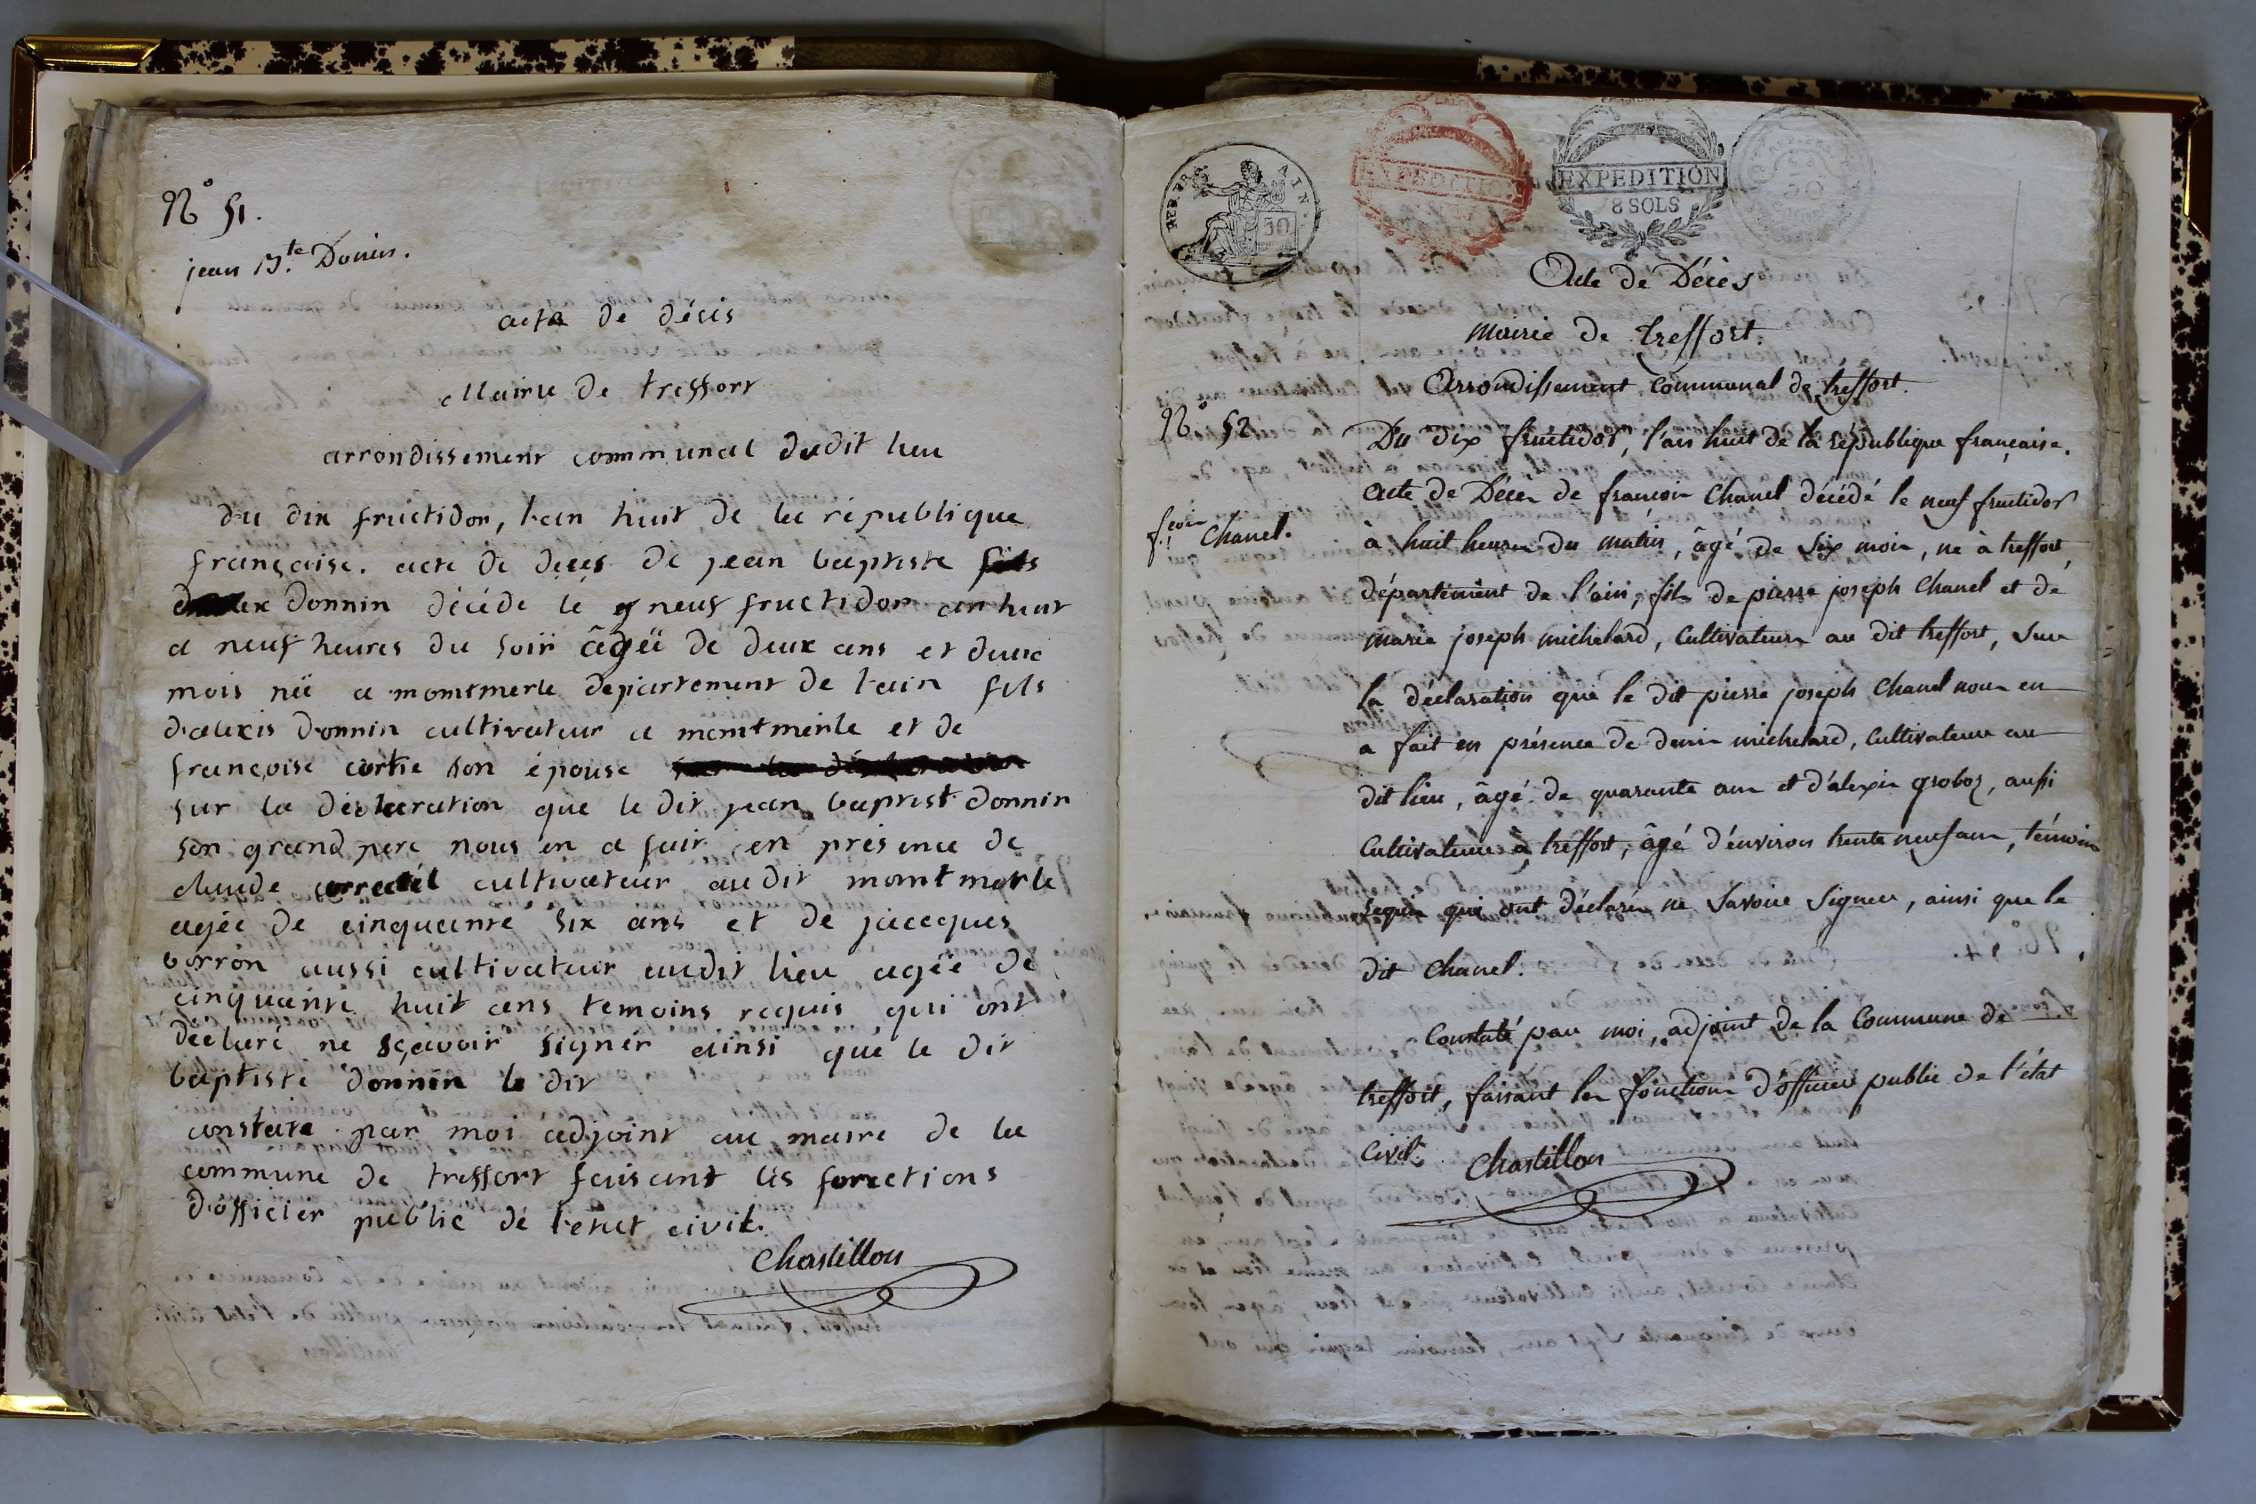 N° 51.
jean B.te Donin.
acte de décis
Mairie de treffort
arrondissement communal dudit lieu
du dix fructidor, l'an huit de la république
française. acte de deces de jean baptiste
donnin décéde le neuf fructidor an huit
a neuf heures du soir âgéé de deux ans et deux
mois né a montmerle departement de l'ain fils
d'alexis donnin cultivateur a montmerle et de
françoise son épouse
sur la déclaration que le dit jean baptist donnin
son grand pere nous en a fait en présence de
claude cultivateur audit montmerle
agée de cinquante six ans et de jacques
borron aussi cultivateur audit lieu agée de
cinquante huit ans temoins requis qui ont
déclaré ne sçavoir signér ainsi que le dit
baptiste donnin le dit
constaté par moi adjoint au maire de la
commune de treffort faisant les fonctions
d'officier public de l'etat civil.
Chastillon
REP. FRA. AIN. 50
EXPEDITION
EXPEDITION
8 SOLS
50
Acte de Décès
Mairie de treffort.
Arrondissement communal de treffort.
N° 52
Du dix fructidor, l'an huit de la république française.
acte de Décès de francois Chanel décédé le neuf fructidor
f.cois Chanel.
à huit heures du matin, âgé de six mois, né à treffort,
département de l'ain, fils de pierre joseph Chanel et de
marie joseph michelard, cultivateurs au dit treffort, sur
la déclaration que le dit pierre joseph Chanel nous en
a fait en présence de denis michelard, cultivateur au
dit lieu, âgé de quarante ans et d'alexis groboz, aussi
cultivateur à treffort, âgé d'environ trente neuf ans, témoins
requis qui ont déclarés ne savoir signer, ainsi que le
dit Chanel.
Constaté par moi, adjoint de la Commune de
treffort, faisant les fonctions d'officier public de l'état
civil. Chastillon